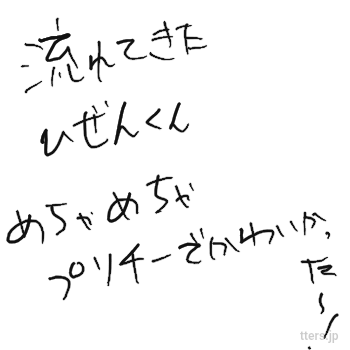 流れてきた
ひぜんくん
めちゃめちゃ
プリチーでかわいかっ
た〜!
tters.jp